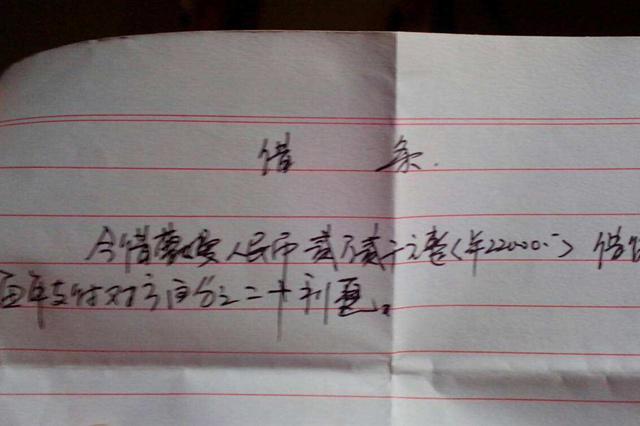 借 条.
今借 人民币贰万贰千元整(¥22000.-) 借
每年支付对方百分之二十利息。